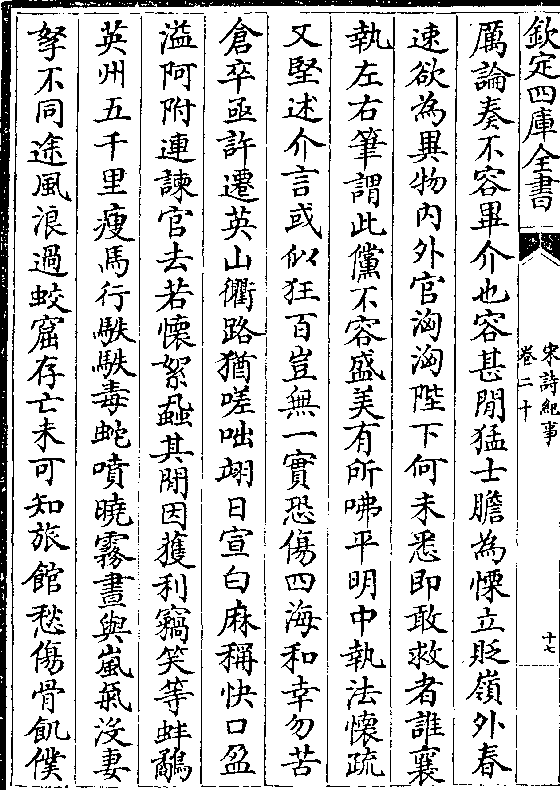 欽定四庫全書
宋詩紀事
卷二十
十七
厲論奏不容畢介也容甚閒猛士膽為慄立貶嶺外春
速欲為異物内外官洶洶陛下何未悉即敢救者誰襄
執左右筆謂此儻不容盛美有所咈平明中執法懷疏
又堅述介言或似狂百豈無一實恐傷四海和幸勿苦
倉卒亟許遷英山衢路猶嗟咄翊日宣白麻稱快口盈
溢阿附連諫官去若懷絮蝨其閒因獲利竊笑等蚌鷸
英州五千里瘦馬行駃駃毒蛇噴曉霧晝與嵐氣沒妻
孥不同途風浪過蛟窟存亡未可知旅館愁傷骨飢僕